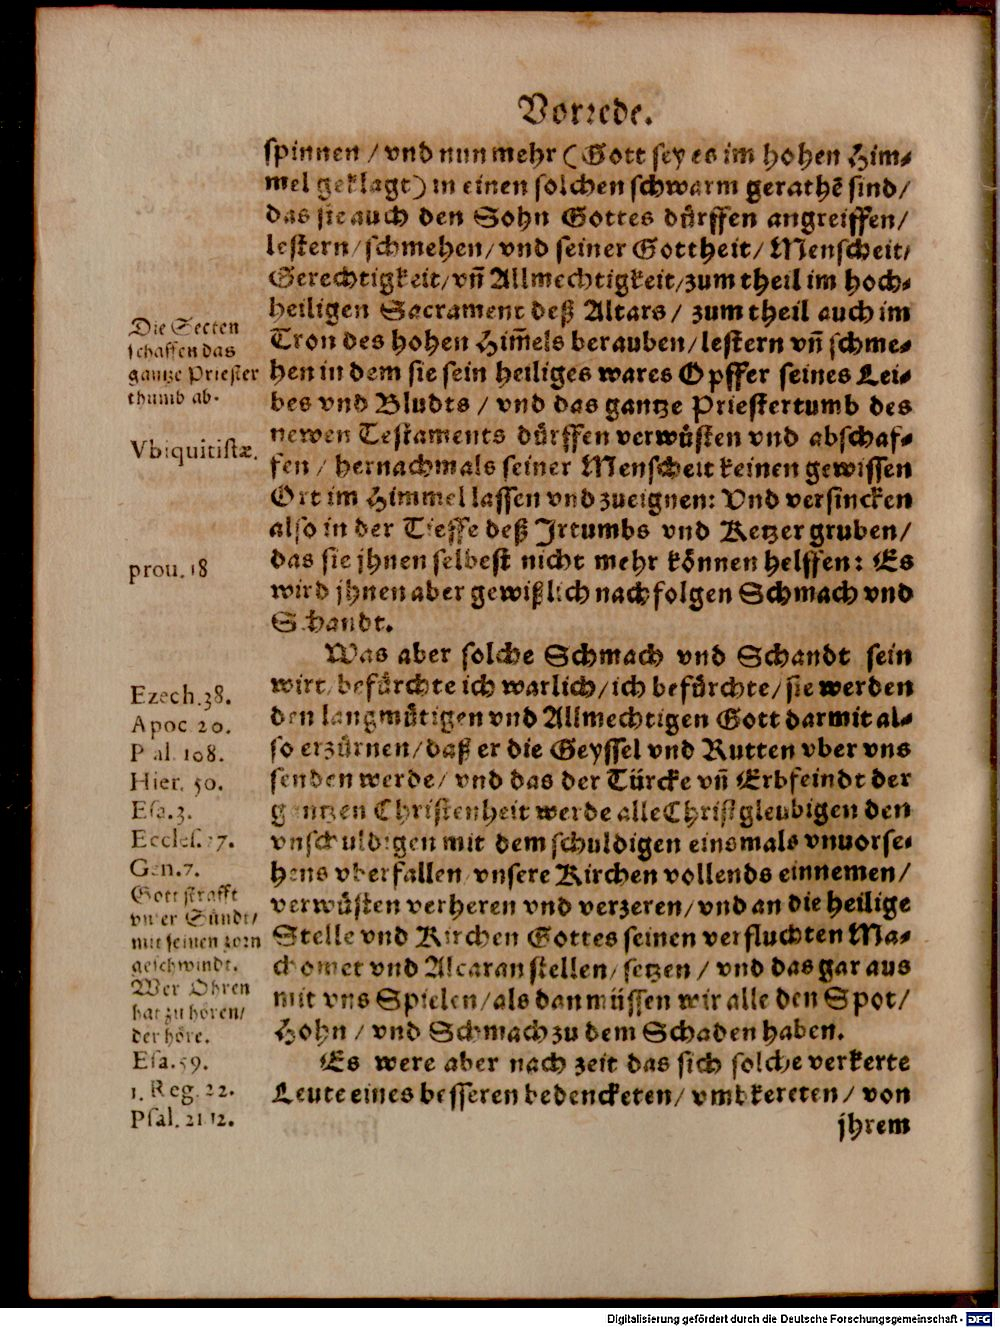 Vorrede.
spinnen / vnd nun mehr (Gott sey es im hohen Him⸗
mel geklagt) in einen solchen schwarm gerathē sind /
das sie auch den Sohn Gottes dürffen angreiffen /
lestern / schmehen / vnd seiner Gottheit / Menscheit /
Gerechtigkeit / vñ Allmechtigkeit / zum theil im hoch⸗
heiligen Sacrament deß Altars / zum theil auch im
Tron des hohen Him̃els berauben / lestern vñ schme⸗
hen in dem sie sein heiliges wares Opffer seines Lei⸗
bes vnd Bludts / vnd das gantze Priestertumb des
newen Testaments dürffen verwüsten vnd abschaf⸗
fen / hernachmals seiner Menscheit keinen gewissen
Ort im Himmel lassen vnd zueignen: Vnd versincken
also in der Tieffe deß Irtumbs vnd Ketzer gruben /
das sie jhnen selbest nicht mehr können helffen: Es
wird jhnen aber gewißlich nachfolgen Schmach vnd
Schandt.
Was aber solche Schmach vnd Schandt sein
wirt / befürchte ich warlich / ich befürchte / sie werden
den langmütigen vnd Allmechtigen Gott darmit al⸗
so erzürnen / daß er die Geyssel vnd Rutten vber vns
senden werde / vnd das der Türcke vñ Erbfeindt der
gantzen Christenheit werde alle Christgleubigen den
vnschuldigen mit dem schuldigen einsmals vnuorse⸗
hens vberfallen vnsere Kirchen vollends einnemen /
verwüsten verheren vnd verzeren / vnd an die heilige
Stelle vnd Kirchen Gottes seinen verfluchten Ma⸗
chomet vnd Alcaran stellen / setzen / vnd das gar aus
mit vns Spielen / als dan müssen wir alle den Spot /
Hohn / vnd Schmach zu dem Schaden haben.
Es were aber nach zeit das sich solche verkerte
Leute eines besseren bedencketen / vmbkereten / von
jhrem
Die Secten
schaffen das
gantze Priester
thumb ab.
Vbiquitistæ.
prou. 18
Ezech. 38.
Apoc 20.
Psal. 108.
Hier. 50.
Esa. 3.
Eccles. 27.
Gen. 7.
Gott strafft
vnser Sündt /
mit seinen zorn
geschwindt.
Wer Ohren
hat zu hören /
der höre.
Esa. 59.
1. Reg. 22.
Psal. 21 12.
Digitalisierung gefördert durch die Deutsche Forschungsgemeinschaft - DFG